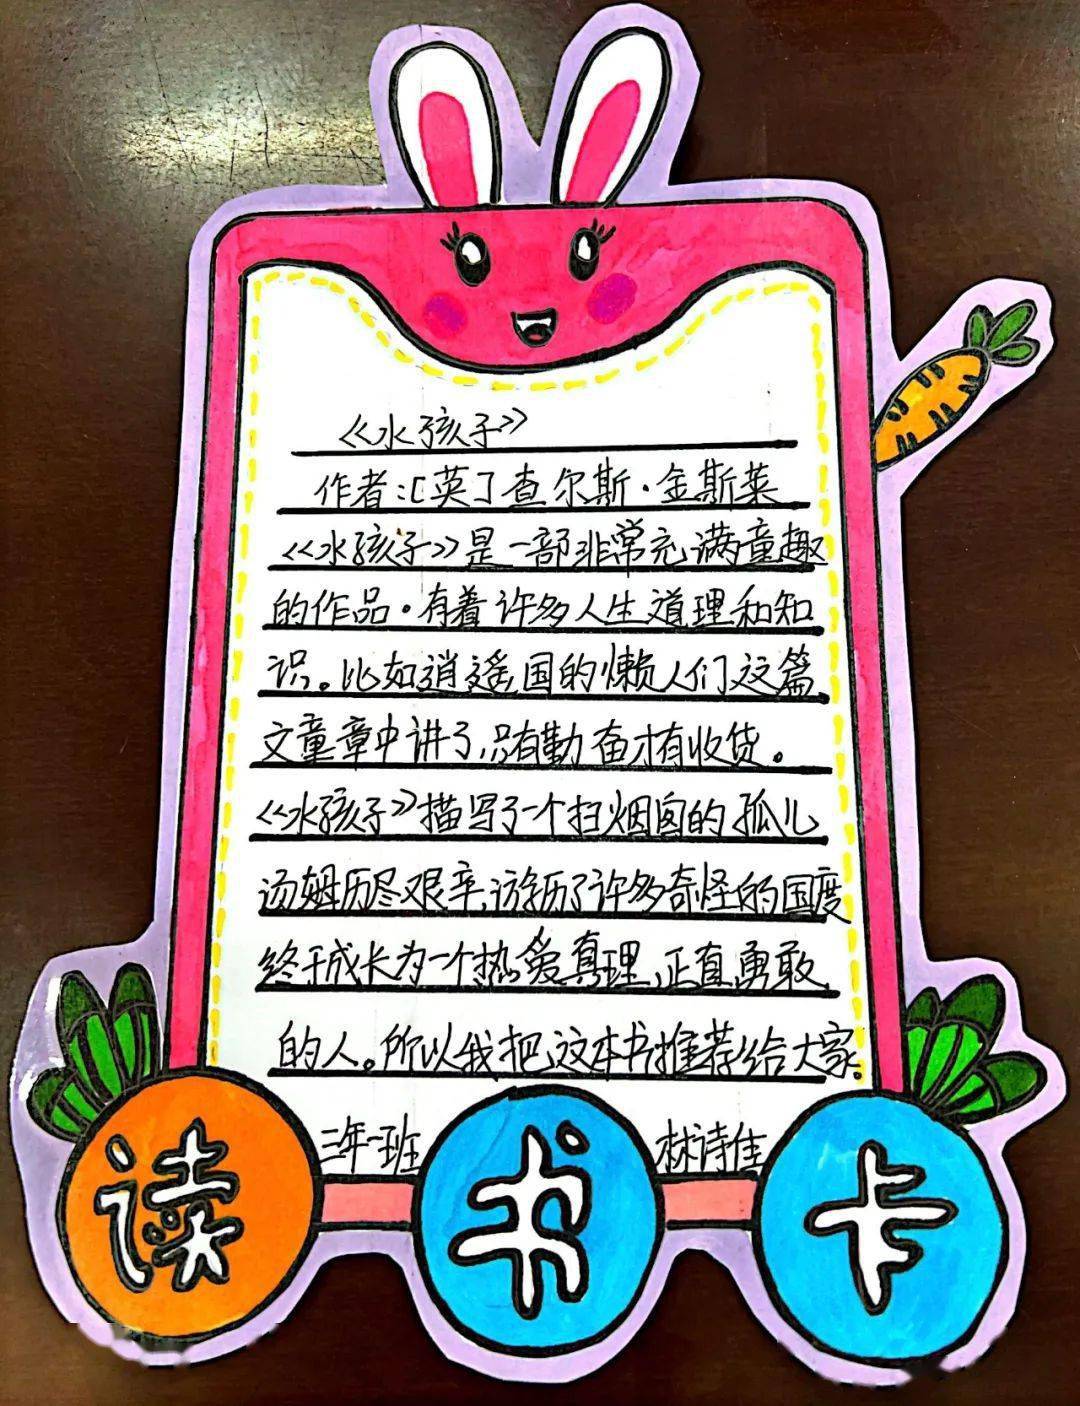 《水孩子》
作者:[英]查尔斯·金斯莱
《水孩子》是一部非常充满童趣
的作品·有着许多人生道理和知
识。比如逍遥国的懒人们这篇
文童章中讲了,只有勤奋才有收货。
《水孩子》描写了一个扫烟囱的孤儿
汤姆历尽艰辛,游历了许多奇怪的国度
终于成长为一个热爱真理,正直勇敢
的人。所以我把这本书推荐给大家。
三年一班 林诗佳
读书卡